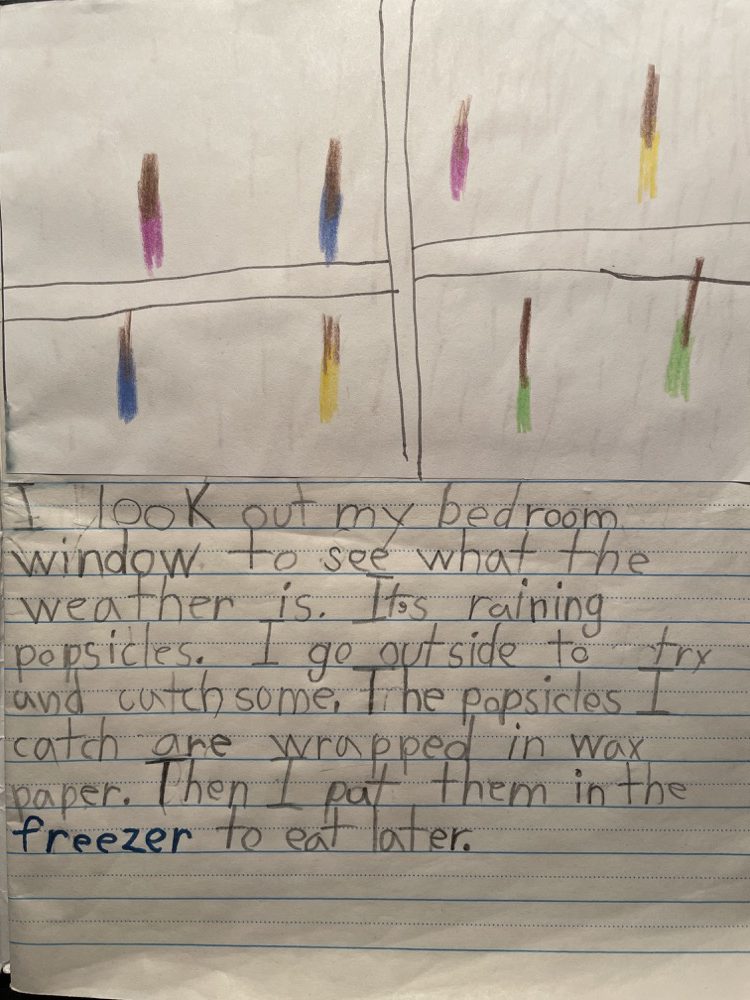 I look out my bedroom
window to see what the
weather is. Its raining
popsicles. I go outside to try
and catch some. The popsicles I
catch are wrapped in wax
paper. Then I put them in the
freezer to eat later.